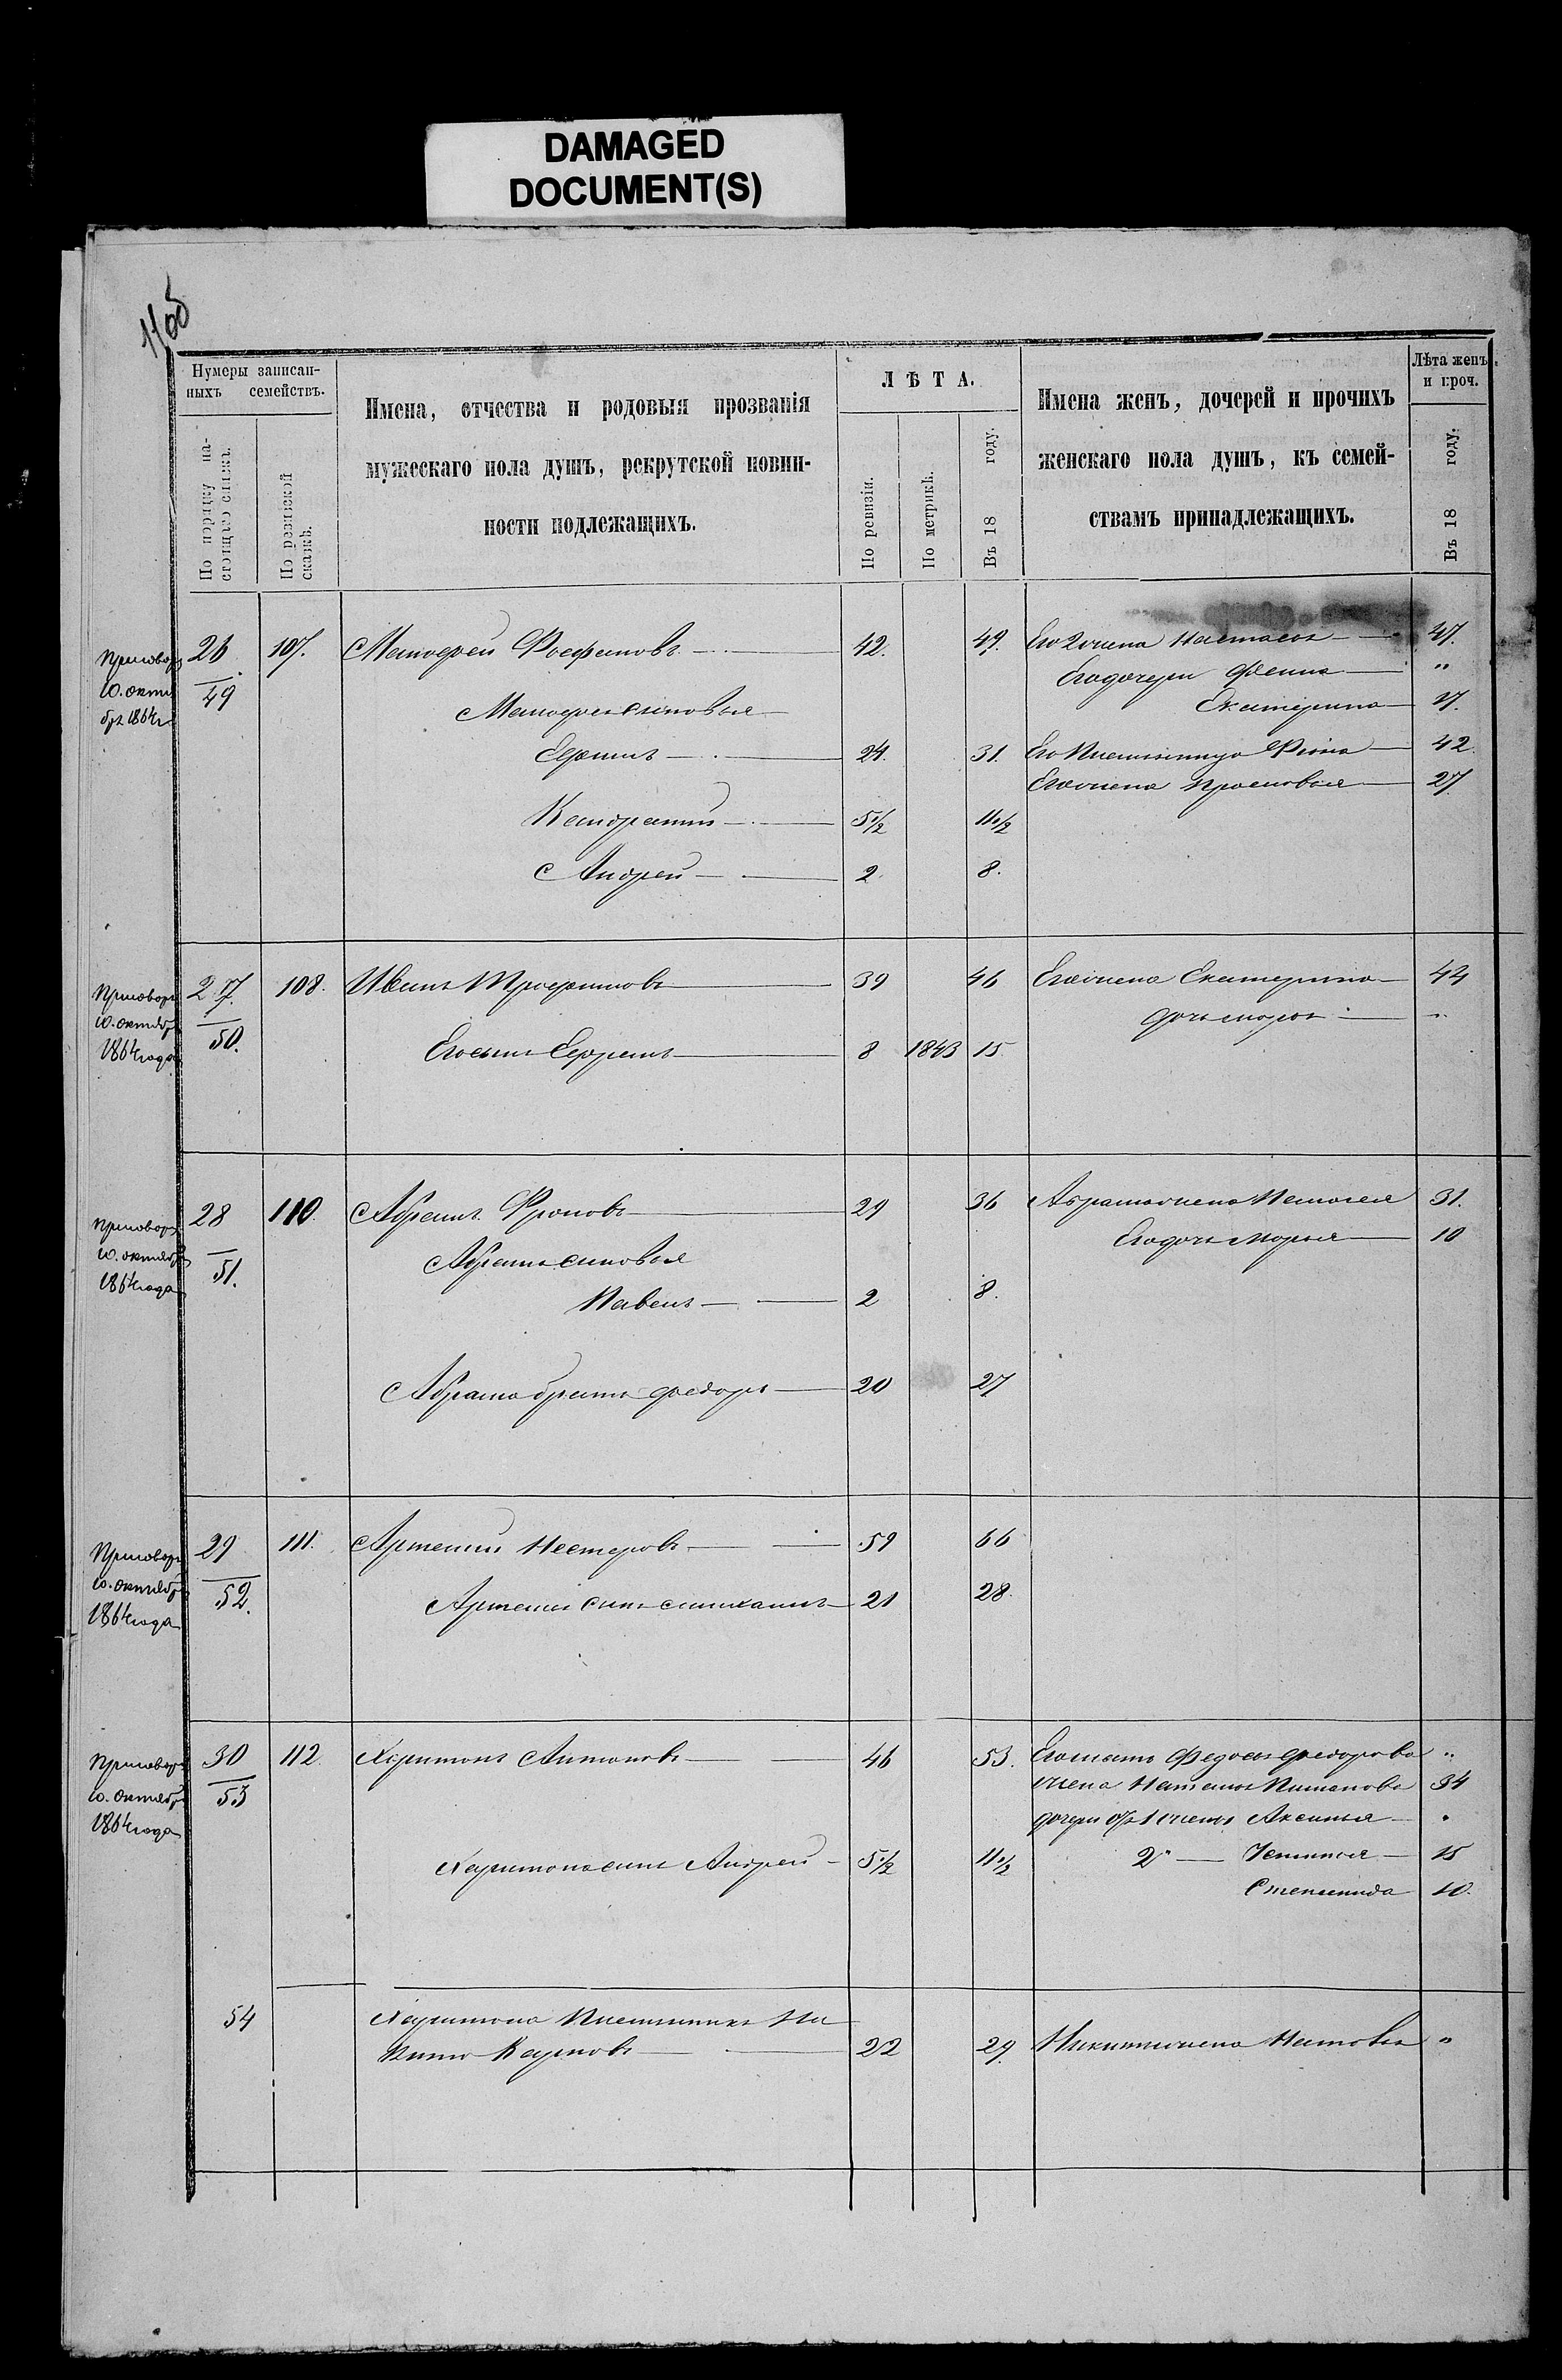 DAMAGED
DOCUMENT(S)
Нумеры записан-
ныхъ семействъ.
По порядку на-
стоящаго списка.
По ревизской
сказкѣ.
Имена, отчества и родовыя прозванія
мужескаго пола душъ, рекрутской повин-
ности подлежащихъ.
ЛѢТА.
По ревизіи.
По метрикѣ.
Въ 18 году.
Имена женъ, дочерей и прочихъ
женскаго пола душъ, къ семей-
ствамъ принадлежащихъ.
Лѣта женъ
и проч.
Въ 18 году.
Приговоръ
10. октя
бря 1864 г
26 107. Матвѣй 42. 49. Его 2 жена Настасья 47.
49
Его дочери Фекла "
Матвѣя сыновья Екатерина 17.
Ефимъ 24. 31. Его племянница 42.
Его жена Прасковья 27.
Кондратій 5 1/2 11 1/2
Андрей 2 8.
Приговоръ
10. октябр
1864 года
27. 108. Иванъ Трофимовъ 39 46 Его жена Екатерина 44
50.
дочь Марья "
Его сынъ Ефремъ 8 1843 15
Приговоръ
10. октября
1864 года
28 110. Абрамъ Фроловъ 29 36 Абрама жена Наталья 31.
51.
Его дочь Марья 10
Абрама сыновья
Павелъ 2 8.
Абрама братъ Федоръ 20 27
Приговоръ
10. октябр
1864 года
29 111. Артемій Нестеровъ 59 66
52.
Артемія сынъ 21 28.
Приговоръ
10. октябр
1864 года
30 112 Харитонъ Антоновъ 46 53. Его мать Федосья Федорова "
53
жена Наталья 34
дочери отъ 1 жены Аксинья "
Харитона сынъ Андрей 5 1/2 11 1/2 2й 15
Степанида 10.
54 Харитона племянникъ Ни
кита Карповъ 22 29. Никиты жена "